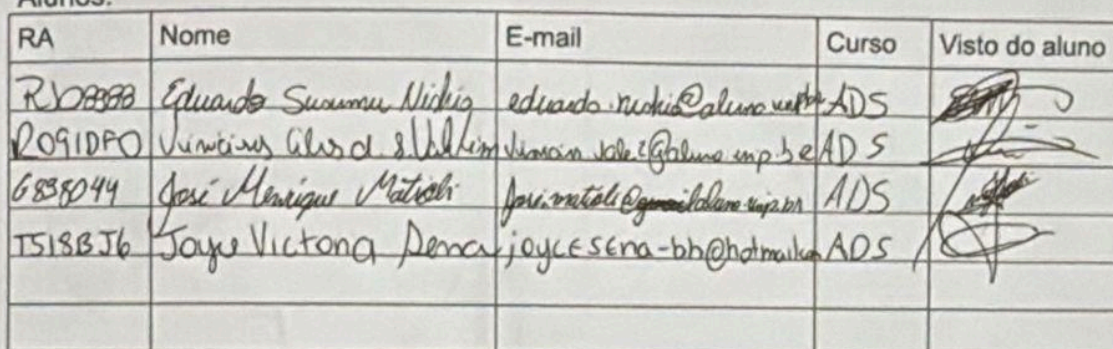 Alunos:
RA Nome E-mail Curso Visto do aluno
Eduardo Susumu Nishio eduardo.nishio@aluno.unip.br ADS
R091DF0 Vinicius ADS
G838044 José Henrique Matioli jose.matioli@aluno.unip.br ADS
T518BJ6 Joyce Victoria Sena joycesena-bh@hotmail.com ADS